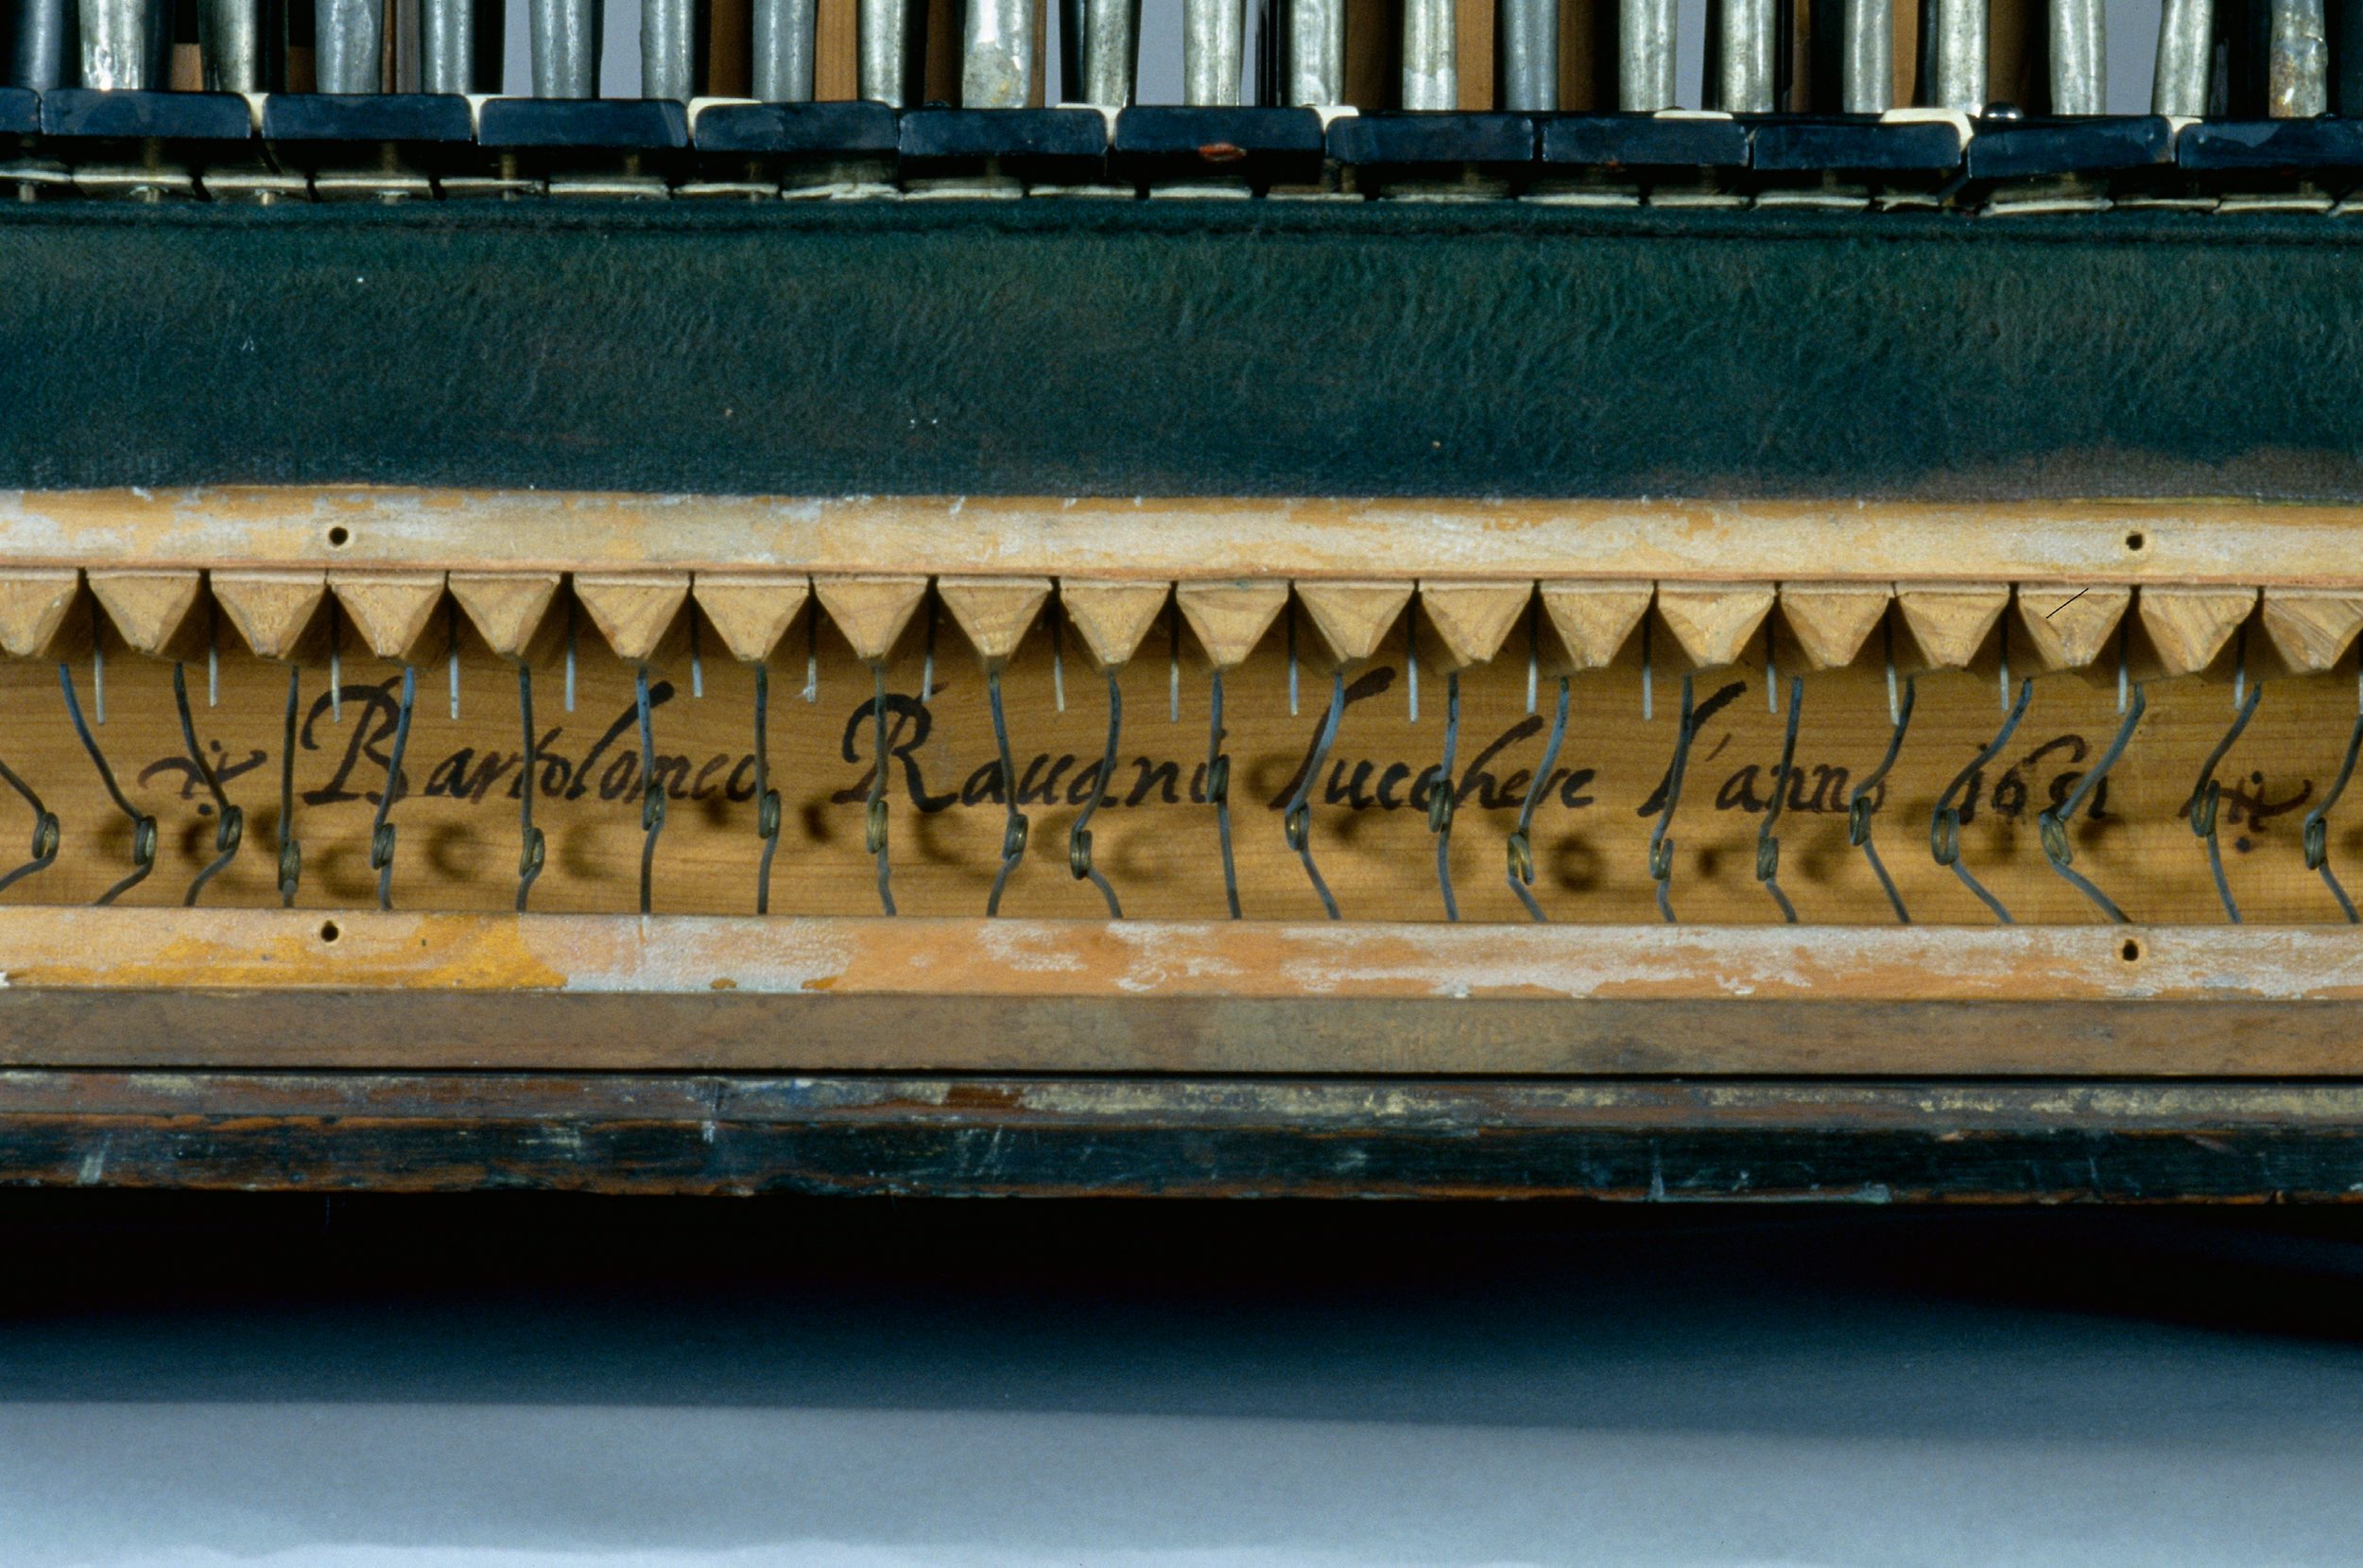 Bartolomeo Rauani lucchese l'anno 1651